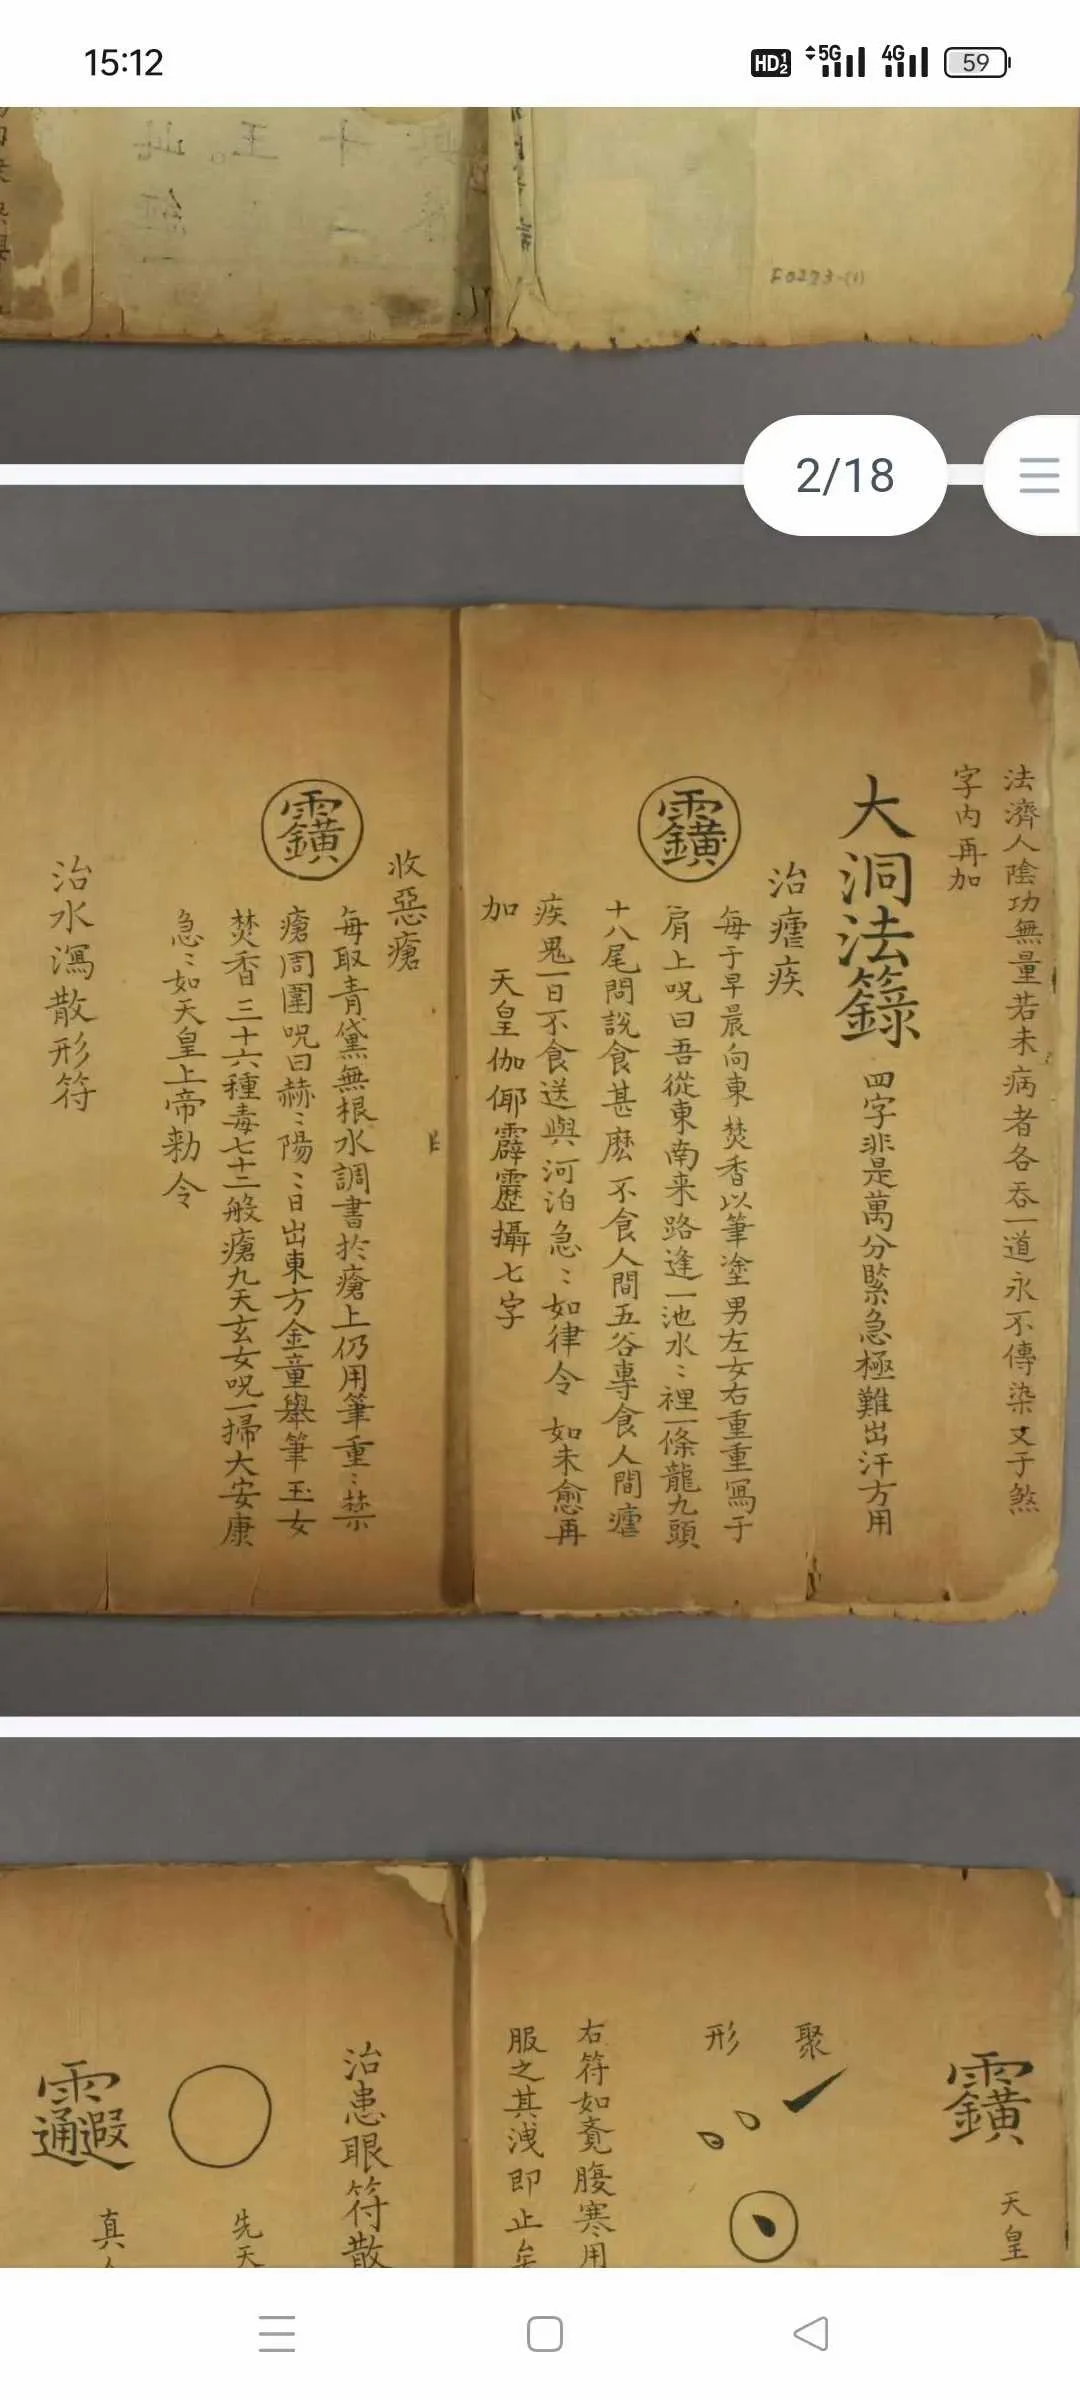 15:12
HD 1 2 5G 4G 59
F0273-(1)
2/18
法濟人陰功無量若未病者各吞一道永不傳染又于煞
字内再加
大洞法籙 四字非是萬分緊急極難出汗方用
治瘧疾
每于早晨向東焚香以筆塗男左女右重重寫于
肩上呪曰吾從東南来路逢一池水〻裡一條龍九頭
十八尾問説食甚麽不食人間五谷專食人間瘧
疾鬼一日不食送與河泊急〻如律令 如未愈再
加 天皇伽倻霹靂攝七字
收惡瘡
每取青黛無根水調書於瘡上仍用筆重〻禁
瘡周圍呪曰赫〻陽〻日出東方金童舉筆玉女
焚香三十六種毒七十二般瘡九天玄女呪一掃大安康
急〻如天皇上帝勅令
治水瀉散形符
天皇
聚
形
右符如覔腹寒用
服之其洩即止矣
治患眼符散
先天
真人